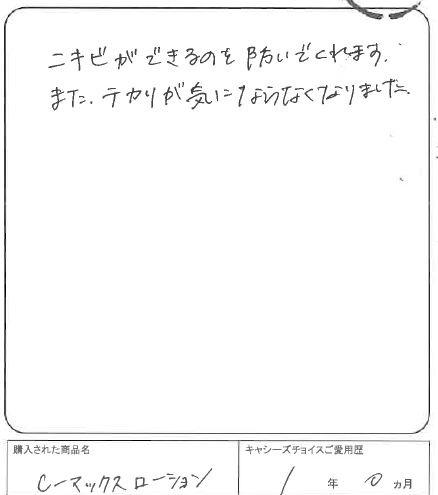 ニキビができるのを防いでくれます。
また、テカリが気にならなくなりました。
購入された商品名
キャシーズチョイスご愛用歴
C-マックスローション
1年0ヵ月